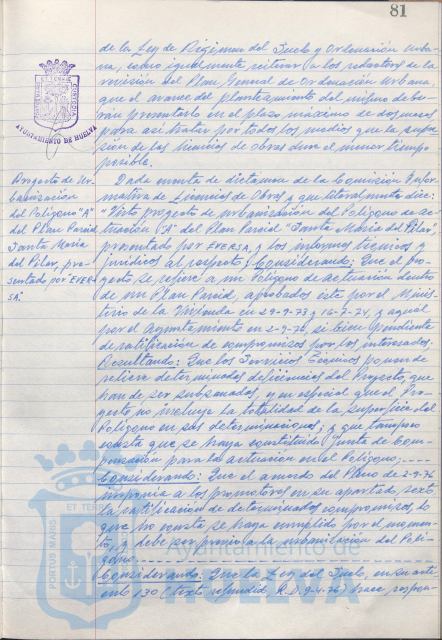 81
de la Ley de Régimen del Suelo y Ordenación Urba-
na, como igualmente reiterar a los redactores de la
revisión del Plan General de Ordenación Urbana
que el avance del planteamiento del mismo debe-
rán presentarlo en el plazo máximo de dos meses
para así tratar por todos los medios que la suspen-
sión de las licencias de obras dure el menor tiempo
posible.
AYUNTAMIENTO DE HUELVA
Proyecto de Ur-
banización
del Polígono "A"
del Plan Parcial
Santa María
del Pilar, pre-
sentado por "EVER-
SA".
Dada cuenta de dictamen de la Comisión Infor-
mativa de Licencias de Obras y que literalmente dice:
"Visto proyecto de urbanización del Polígono de ac-
tuación "A" del Plan Parcial "Santa María del Pilar",
presentado por EVERSA, y los informes técnicos y
jurídicos al respecto; Considerando: Que el pro-
yecto se refiere a un Polígono de actuación dentro
de un Plan Parcial, aprobados este por el Minis-
terio de la Vivienda en 29-9-73 y 16-7-74, y aquel
por el Ayuntamiento en 2-9-76, si bien pendiente
de ratificación de compromisos por los interesados.
Resultando: Que los Servicios Técnicos ponen de
relieve determinadas deficiencias del Proyecto, que
han de ser subsanadas, y en especial que el Pro-
yecto no incluye la totalidad de la superficie del
Polígono en sus determinaciones; y que tampoco
consta que se haya constituido Junta de Com-
pensación para la actuación en el Polígono;
Considerando: Que el acuerdo del Pleno de 2-9-76
imponía a los promotores en su apartado sexto
la ratificación de determinados compromisos, lo
que no consta se haya cumplido por el momen-
to, y debe ser previo a la urbanización del Polí-
gono.
Considerando: Que la Ley del Suelo, en su artí-
culo 130 (texto refundido R.D. 9-4-76) hace respon-
PORTUS MARIS ET TERRAE
Ayuntamiento de
HUELVA